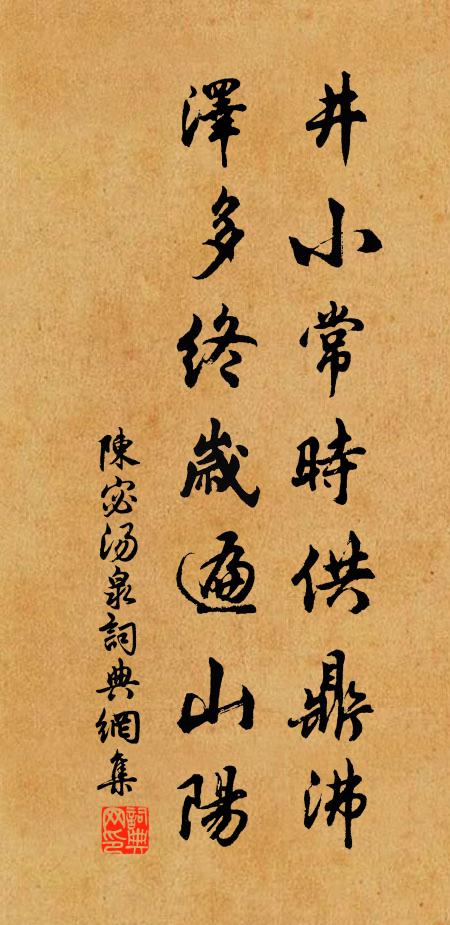 井小常時供鼎沸
澤多終歲遍山陽
陳宓汤泉詞典網集
詞典网印